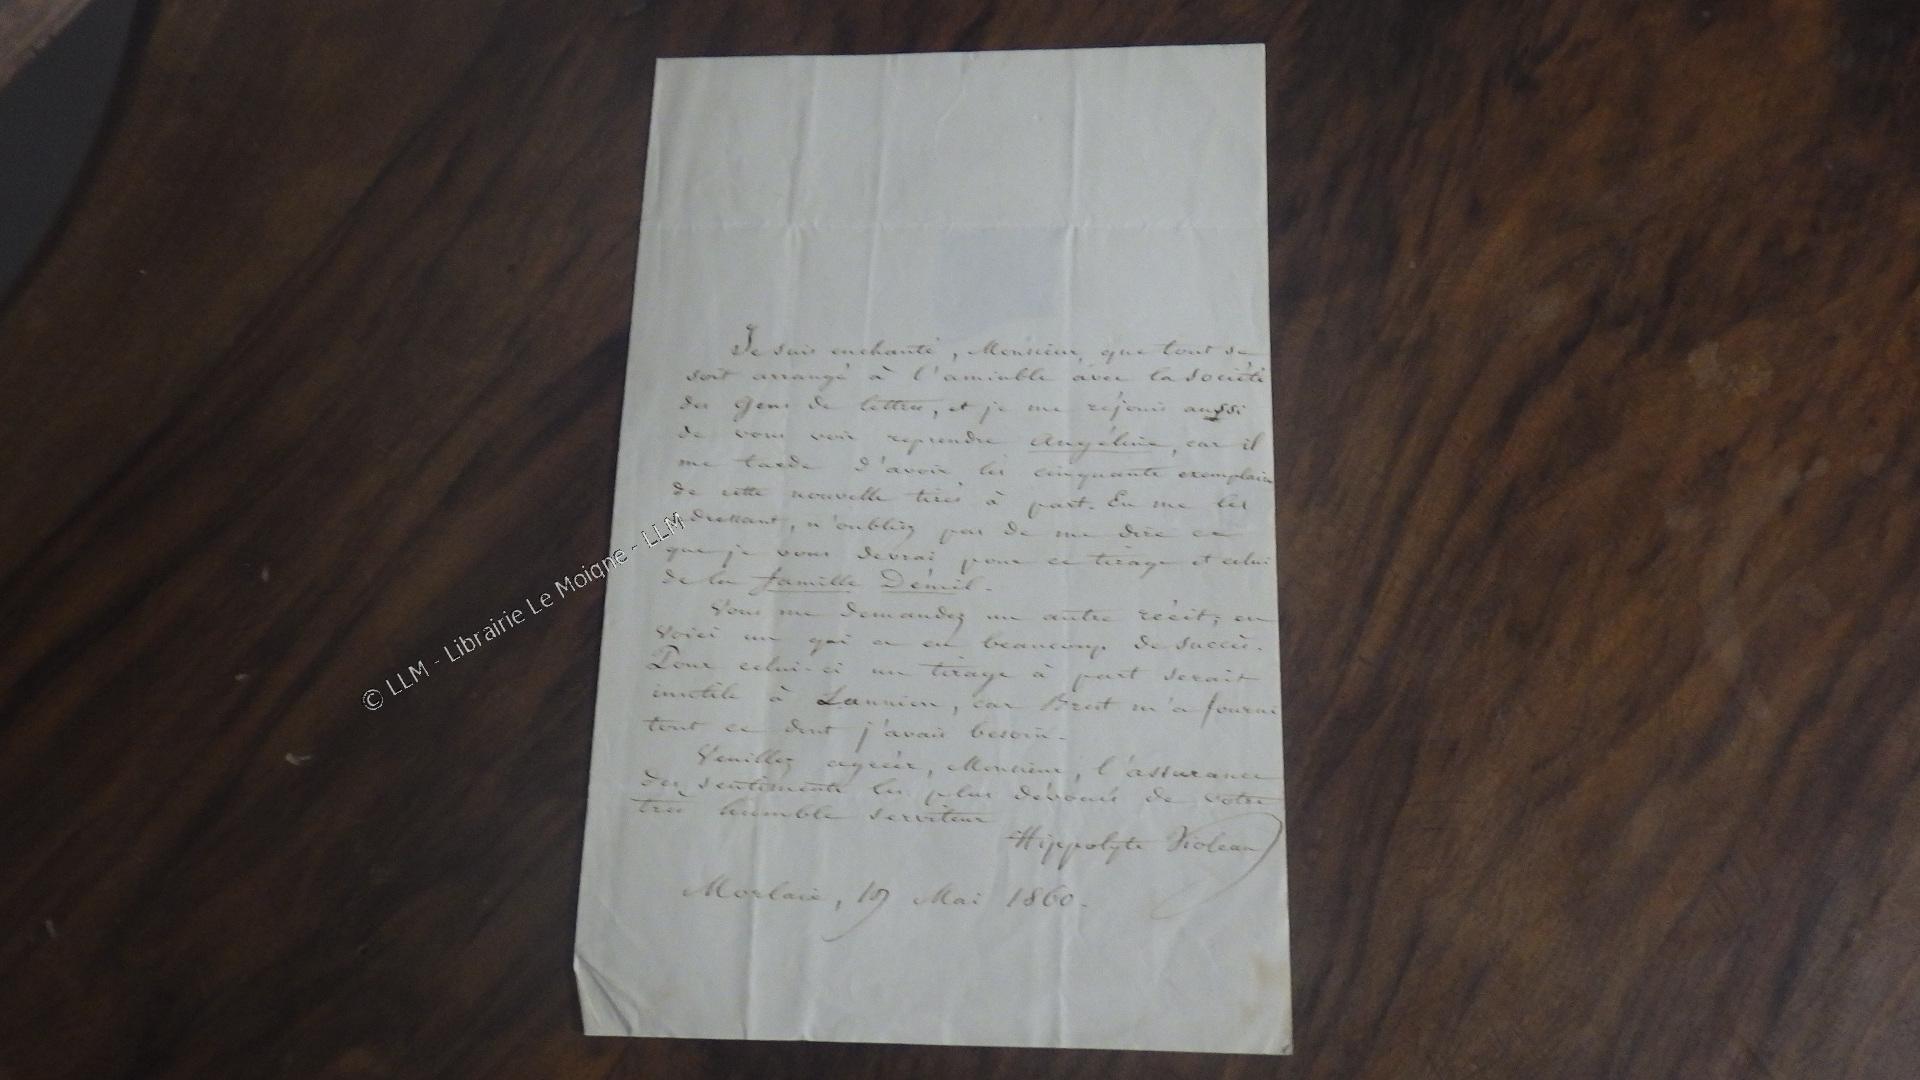 Je suis enchanté, Monsieur, que tout se
soit arrangé à l'amiable avec la société
des Gens de lettres, et je me réjouis aussi
de vous voir reprendre Angéline, car il
me tarde d'avoir les cinquante exemplaires
de cette nouvelle tirés à part. En me les
adressant, n'oubliez pas de me dire ce
que je vous devrai pour ce tirage et celui
de la famille
Vous me demandez un autre récit; en
voici un qui a eu beaucoup de succès.
Pour celui-ci un tirage à part serait
inutile à Lannion, car Brest m'a fourni
tout ce dont j'avais besoin.
Veuillez agréer, Monsieur, l'assurance
des sentiments les plus dévoués de votre
très humble serviteur
Hippolyte Violeau
Morlaix, Mai 1860.
© LLM - Librairie Le Moigne - LLM